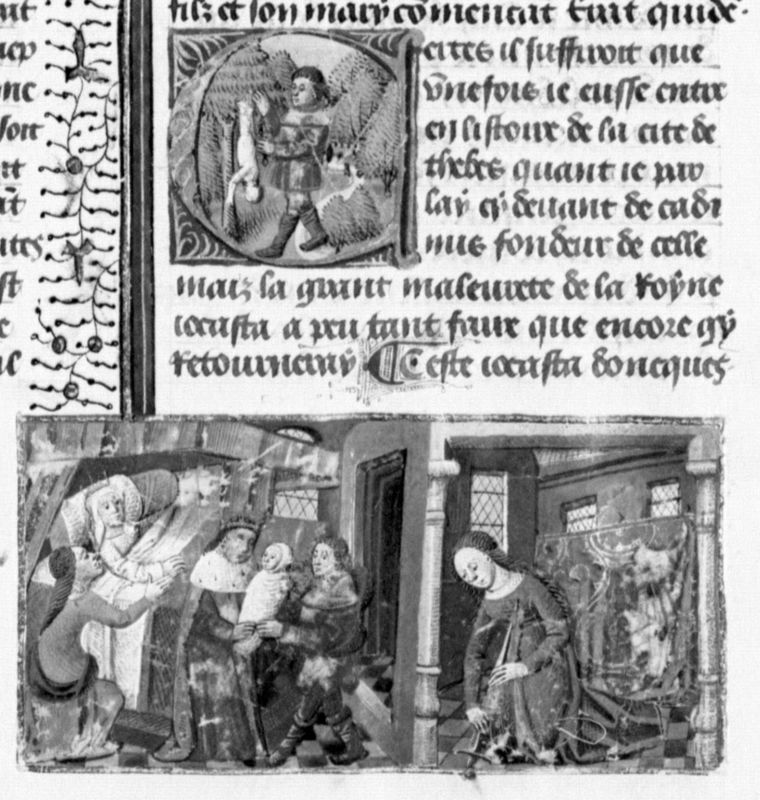 filz et son mary cōmencat Eust quide
cites il suffiroit que
vnefois ie eusse entre
en listoire de la cite de
thebes quant ie par
lay cy deuant de cad
mus fondeur de celle
maiz la grant maleurete de la Royne
iocasta a peu tant faire que encore gy
Retourneray Ceste iocasta doncques